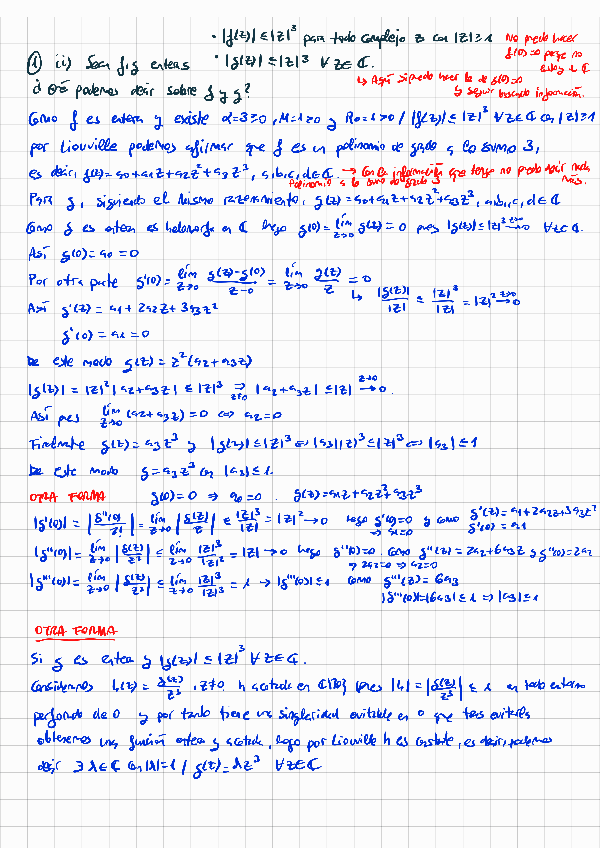 • |f(z)| ≤ |z|³ para todo complejo z con |z| ≥ 1
No puedo hacer f(0)=0 porque no
① ii) Sean f, g enteras • |g(z)| ≤ |z|³ ∀z∈ℂ.
↳ Aquí sí puedo hacer lo de g(0)=0
¿Qué podemos decir sobre f y g?
y seguir buscando información.
Como f es entera y existe α=3≥0, M=1>0 y R₀=1>0 / |f(z)| ≤ |z|³ ∀z∈ℂ con |z|≥1
por Liouville podemos afirmar que f es un polinomio de grado a lo sumo 3,
es decir, f(z) = a₀+a₁z+a₂z²+a₃z³, a,b,c,d∈ℂ. → Con la información que tengo no puedo decir nada más.
Polinomio a lo sumo de grado 3
Para g, siguiendo el mismo razonamiento, g(z) = a₀+a₁z+a₂z²+a₃z³, a,b,c,d∈ℂ
Como g es entera es holomorfa en ℂ luego g(0) = lím z→0 g(z) = 0 pues |g(z)| ≤ |z|³ z→0→ 0 ∀z∈ℂ.
Así g(0) = a₀ = 0
Por otra parte g'(0) = lím z→0 (g(z)-g(0))/(z-0) = lím z→0 g(z)/z = 0
↳ |g(z)|/|z| ≤ |z|³/|z| = |z|² z→0→ 0
Así g'(z) = a₁ + 2a₂z + 3a₃z²
g'(0) = a₁ = 0
De este modo g(z) = z²(a₂+a₃z)
|g(z)| = |z|² |a₂+a₃z| ≤ |z|³ ⇒ z≠0 |a₂+a₃z| ≤ |z| z→0→ 0.
Así pues lím z→0 (a₂+a₃z) = 0 ⇔ a₂=0
Finalmente g(z) = a₃z³ y |g(z)| ≤ |z|³ ⇔ |a₃||z|³ ≤ |z|³ ⇔ |a₃| ≤ 1
De este modo g = a₃z³ con |a₃| ≤ 1.
OTRA FORMA g(0)=0 ⇒ a₀=0. g(z)=a₁z+a₂z²+a₃z³
|g'(0)| = |g'(0)/1!| = lím z→0 |g(z)/z| ≤ |z|³/|z| = |z|² → 0 luego g'(0)=0 y como g'(z)=a₁+2a₂z+3a₃z²
⇒ a₁=0 g'(0)=a₁
|g''(0)| = lím z→0 |g(z)/z²| ≤ lím z→0 |z|³/|z|² = |z| → 0 luego g''(0)=0. Como g''(z) = 2a₂+6a₃z y g''(0)=2a₂
⇒ 2a₂=0 ⇒ a₂=0
|g'''(0)| = lím z→0 |g(z)/z³| ≤ lím z→0 |z|³/|z|³ = 1 → |g'''(0)| ≤ 1 como g'''(z) = 6a₃
|g'''(0)|=|6a₃| ≤ 1 ⇒ |a₃| ≤ 1
OTRA FORMA
Si g es entera y |g(z)| ≤ |z|³ ∀z∈ℂ.
Consideramos h(z) = g(z)/z³, z≠0 h acotada en ℂ\{0} pues |h| = |g(z)/z³| ≤ 1 en todo entorno
perforado de 0 y por tanto tiene una singularidad evitable en 0 que tras evitarla
obtenemos una función entera y acotada, luego por Liouville h es constante, es decir, podemos
decir ∃λ∈ℂ con |λ|=1 / g(z)=λz³ ∀z∈ℂ